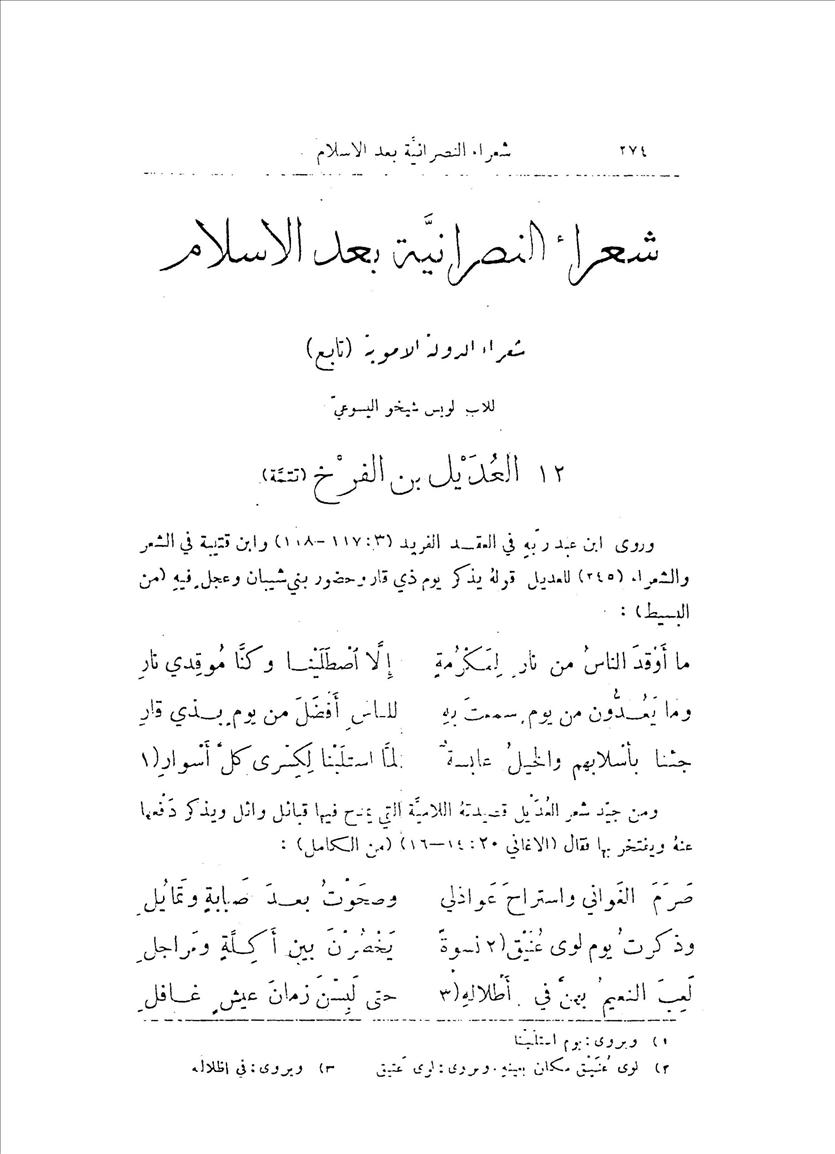 ٢٧٤ شعراء النصرانيَّة بعد الاسلام
شعراء النصرانيَّة بعد الاسلام
شعراء الدولة الاموية (تابع)
للاب لويس شيخو اليسوعيّ
١٢ العُدَيْل بن الفرْخ (تتمَّة)
وروى ابن عبد ربّهِ في العقد الفريد (٣: ١١٧–١١٨) وابن قتيبة في الشعر
والشعراء (٢٤٥) للعديل قولهُ يذكر يوم ذي قار وحضور بني شيبان وعجلٍ فيهِ (من
البسيط) :
ما أَوْقدَ الناسُ من نارٍ لِمَكْرُمةٍ إِلَّا ٱصْطَلَيْنا وكنَّا مُوقِدي نارِ
وما يَعُدُّون من يومٍ سمعتَ بهِ للناسِ أَفضَلَ من يومٍ بذي قارِ
جئنا بأَسلابهم والخيلُ عابسةٌ لمَّا استلَبْنا لِكِسْرى كلَّ أَسوارِ(١
ومن جيّد شعر العُدَيْل قصيدتهُ اللاميَّة التي يمدح فيها قبائل وائل ويذكر دَفْعها
عنهُ ويفتخر بها فقال (الاغاني ٢٠: ١٤–١٦) (من الكامل) :
صَرَمَ الغَواني واستراحَ عَواذلي وصحَوْتُ بعدَ صَبابةٍ وتمَايُلِ
وذكرتُ يوم لوى عُنَيْق(٢ نسوةً يَخْطُرْنَ بين أَكِلَّةٍ ومَراجلِ
لَعِبَ النعيمُ بهنَّ في أَطْلالهِ(٣ حتى لَبِسْنَ زمانَ عيشٍ غافلِ
١) ويروى: يوم استلبْنا
٢) لوى عُنَيْق مكان بعينهِ. ويروى: لوى عَتيق ٣) ويروى: في اظلاله